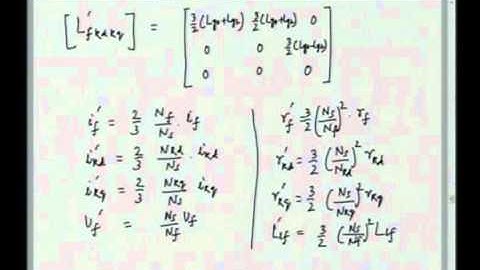 [L'fkdkq] = [3/2(Lg0+Lg2) 3/2(Lg0+Lg2) 0
0 0 3/2(Lg0-Lg2)
0 0 0]
if' = 2/3 Nf/Ns · if
ikd' = 2/3 Nkd/Ns · ikd
ikq' = 2/3 Nkq/Ns ikq
vf' = Ns/Nf vf
rf' = 3/2 (Ns/Nf)² · rf
r'kd = 3/2 (Ns/Nkd)² rkd
r'kq = 3/2 (Ns/Nkq)² rkq
L'lf = 3/2 (Ns/Nf)² Llf